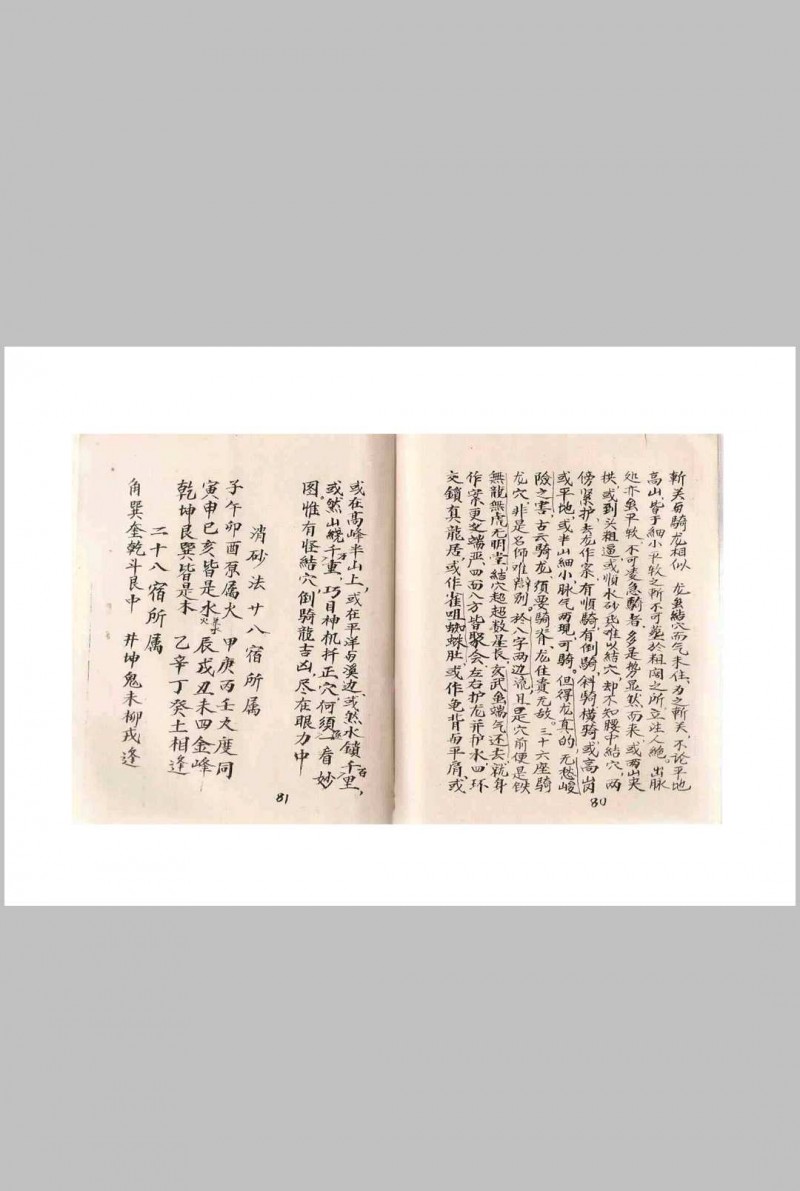 斩关与骑龙相似 龙虽结穴而气未住,为之斩关,不论平地
高山,皆于细小平软之所不可葬於粗阔之所,立注人绝。出脉
处亦虽平软,不可凌急骑者,多是势显然而来,或两山夹
拱,或到头粗逼或顺水砂飞难以结穴,却不知腰中结穴,两
傍紧护去龙作案,有顺骑有倒骑斜骑横骑或高岗
或平地,或半山细小脉气两现可骑。但得龙真的,无愁峻
险之害,古云骑龙,须要骑脊,龙住贵无敌。三十六座骑
龙穴,非是名师唯辩别。於八字两边流,且是穴前便是铁
無龍無虎无明堂結穴超超数是長,玄武虽端气还去,就身
作案更之端严,四面八方皆聚会,左右护龙并护水,四环
交鎖真龍居,或作雀咀蜘蛛肚,或作龟背与平肩,或
80
或在高峰半山上,或在平洋与溪边,或然水鎖千百里,
或然山繞千万重,巧目神机扦正穴,何須一看妙
图,惟有怪結穴倒騎龍吉凶,尽在眼力中
消砂法廿八宿所属
子午卯酉原属火 甲庚丙壬火度同
寅申巳亥皆是水 辰戌丑未四金峰
乾坤艮巽皆是木 乙辛丁癸土相逢
二十八宿所属
角巽奎乾斗艮中 井坤鬼未柳戎逢
81